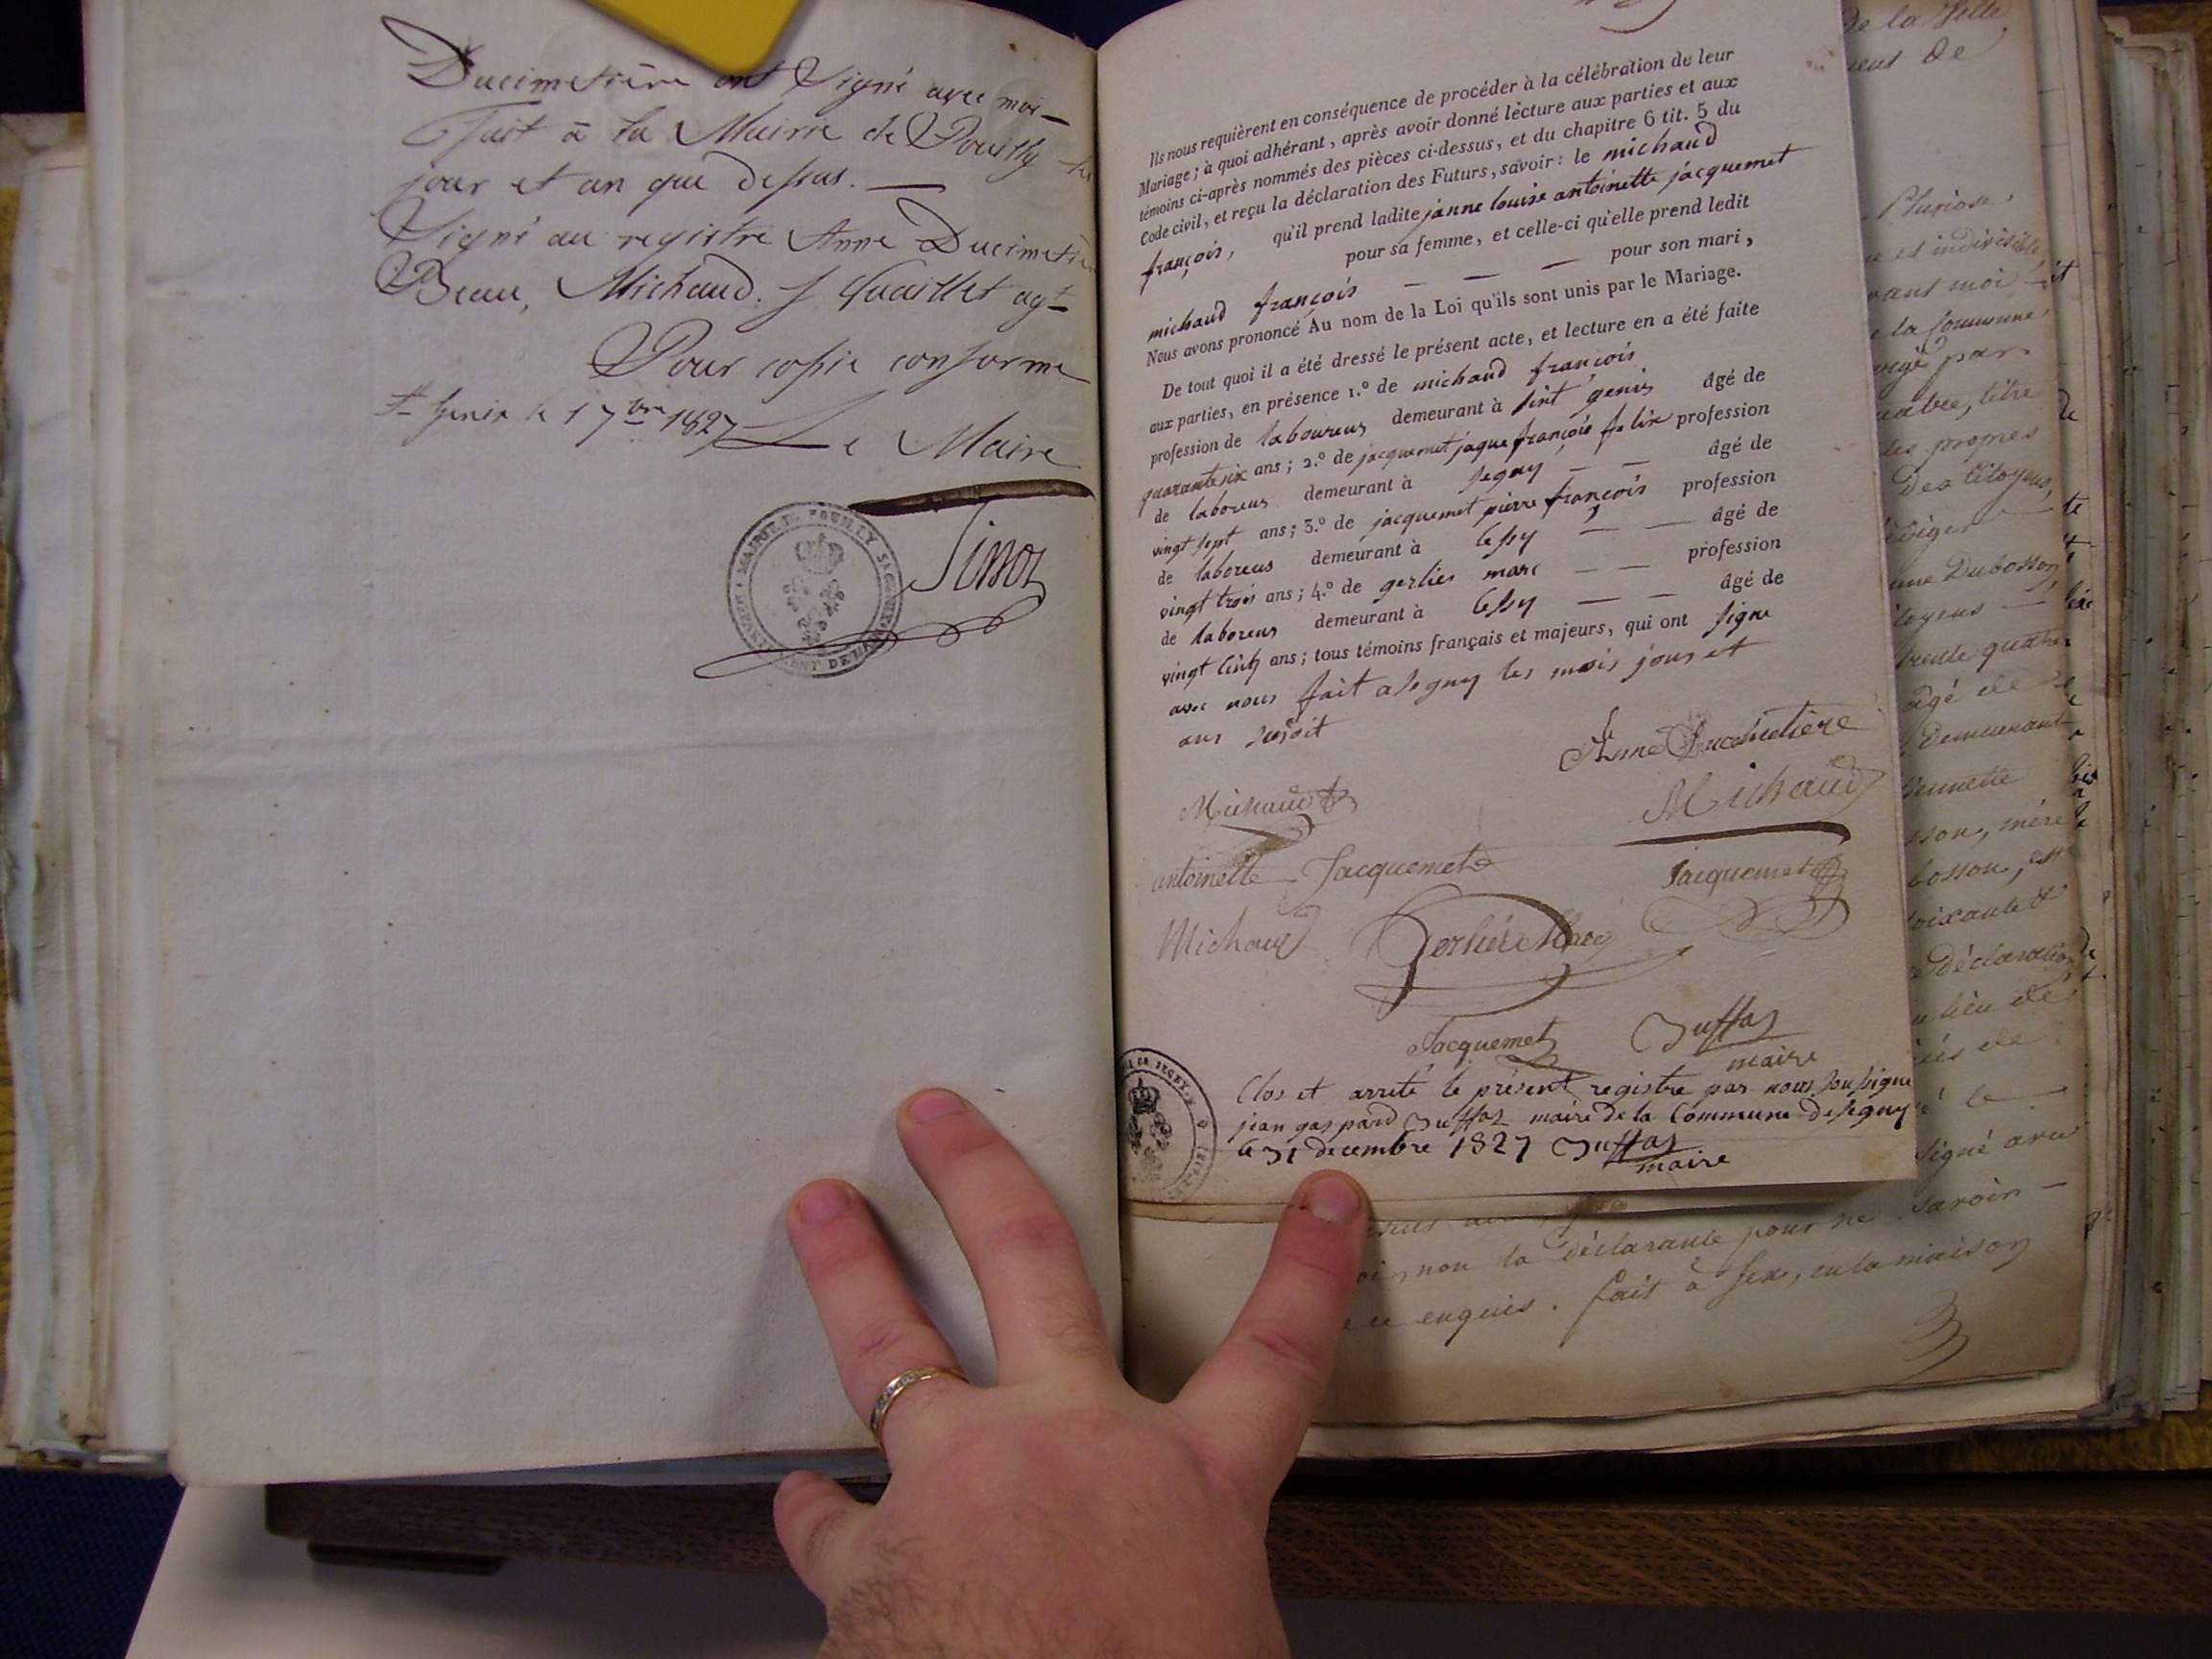 Ducimetière ont Signé avec moi
Fait à la Mairie de Pouilly les
jour et an que dessus.
Signé au registre Anne Ducimetière
Beau, Michaud. J quaillet agt
Pour copie conforme
St Genis le 1 7bre 1827
Le Maire
MAIRIE DE POUILLY ST GENIS
Ils nous requièrent en conséquence de procéder à la célébration de leur
Mariage ; à quoi adhérant, après avoir donné lecture aux parties et aux
témoins ci-après nommés des pièces ci-dessus, et du chapitre 6 tit. 5 du
Code civil, et reçu la déclaration des Futurs, savoir : le michaud
françois, qu'il prend ladite janne louise antoinette jacquemet
pour sa femme, et celle-ci qu'elle prend ledit
michaud françois — — — pour son mari,
Nous avons prononcé Au nom de la Loi qu'ils sont unis par le Mariage.
De tout quoi il a été dressé le présent acte, et lecture en a été faite
aux parties, en présence 1.º de michaud françois
profession de laboureus demeurant à sint genis âgé de
quarante six ans ; 2.º de jacquemet jaque françois felix profession
de laboreus demeurant à segny — — âgé de
vingt sept ans ; 3.º de jacquemet pierre françois profession
de laboreus demeurant à cessy — — âgé de
vingt trois ans ; 4.º de gerlier marc — — profession
de laboreus demeurant à cessy — — âgé de
vingt cinq ans ; tous témoins français et majeurs, qui ont signe
avec nous fait a segny les mois jour et
ans susdit
Anne Ducimetière
Michaud
Michaud
antoinette Jacquemet
Jacquemet
Michaud
Gerlier Marc
Jacquemet
Buffaz
maire
Clos et arrêté le présent registre par nous soussigne
jean gaspard Buffaz maire de la Commune de segny
le 31 decembre 1827 Buffaz
maire
de la Ville
Pluviose,
et indivisible
vant moi
la Commune
par
titre
des propres
Des Citoyens,
rédiger
Dubosson
citoyens
trente quatre
âgé de
demeurant
mère
bosson, est
soixante et
déclaration
lieu de
signé avec
savoir —
non la déclarante pour ne
ce enquis. fait à Gex, en la maison